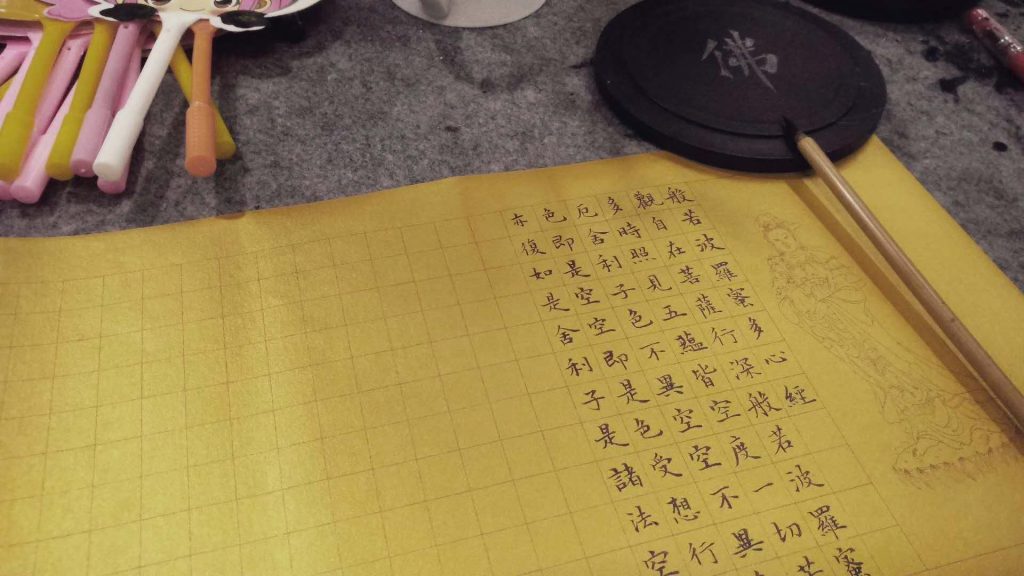 佛
般若波羅蜜多心經
觀自在菩薩行深般若波羅蜜
多時照見五蘊皆空度一切苦
厄舍利子色不異空空不異
色即是空空即是色受想行
亦復如是舍利子是諸法空